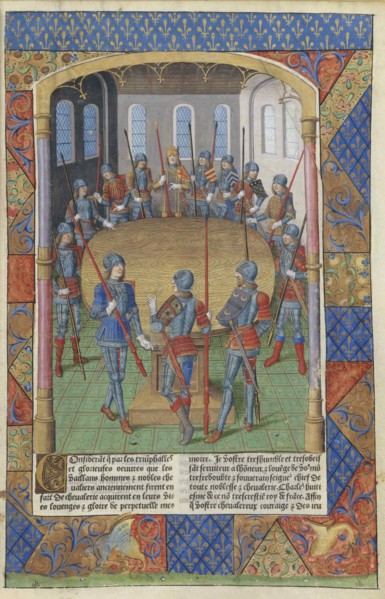 Considerāt q̄ par les triūphalles
et glorieuses oeuures que les
Vaillans hommes ⁊ nobles che
ualiers anciennement firent en
fait de cheualerie acquirent en leurs Vi
es louenges ⁊ gloire de perpetuelle me
moire. Je Vostre treshumble et tresobeis
sāt seruiteur a lhōneur ⁊ louēge de Vo
tresredoubte ⁊ souuerain seignr̄ chief de
toute noblesse ⁊ cheualerie Charles huit
esme de ce nō trescrestiē roy de frāce. Affin
q̄ Vostre cheualereux courage ⁊ des ieu